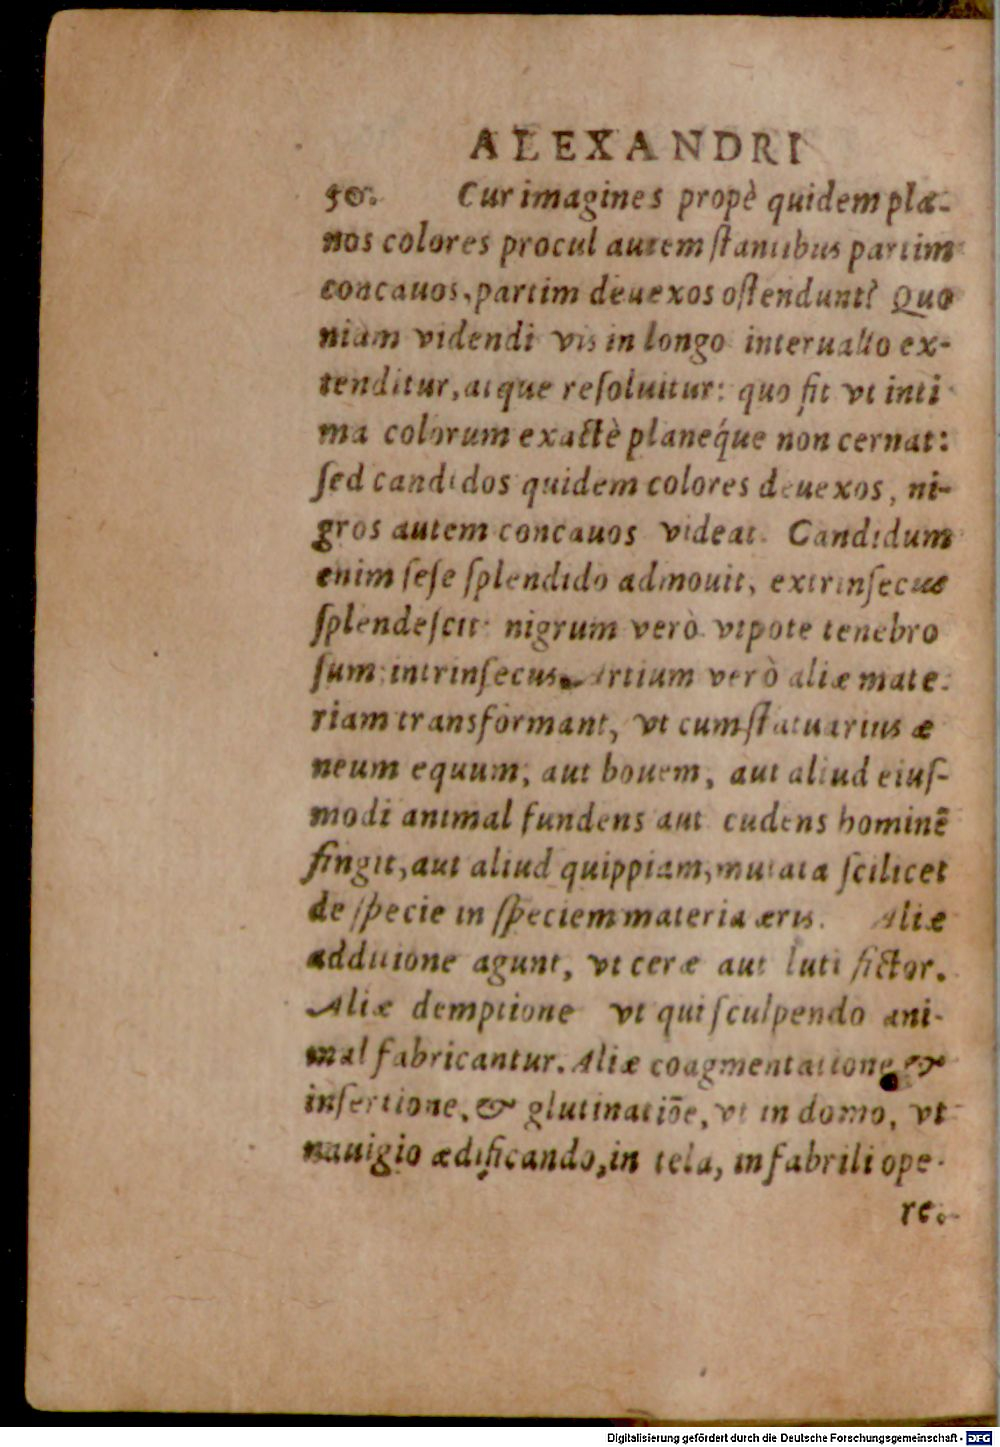 ALEXANDRI
50. Cur imagines propè quidem pla-
nos colores procul autem ſtantibus partim
concauos, partim deuexos oſtendunt? Quo
niam videndi vis in longo interuallo ex-
tenditur, atque reſoluitur: quo fit vt inti
ma colorum exactè planeq́ue non cernat:
ſed candidos quidem colores deuexos, ni-
gros autem concauos videat. Candidum
enim ſeſe ſplendido admouit, extrinſecus
ſplendeſcit: nigrum verò vtpote tenebro
ſum intrinſecus. Artium verò aliæ mate-
riam transformant, vt cum ſtatuarius æ
neum equum, aut bouem, aut aliud eiuſ-
modi animal fundens aut cudens hominē
fingit, aut aliud quippiam, mutata ſcilicet
de ſpecie in ſpeciem materia æris. Aliæ
additione agunt, vt ceræ aut luti fictor.
Aliæ demptione vt qui ſculpendo ani-
mal fabricantur. Aliæ coagmentatione &
inſertione, & glutinatiōe, vt in domo, vt
nauigio ædificando, in tela, in fabrili ope-
re.
Digitalisierung gefördert durch die Deutsche Forschungsgemeinschaft - DFG